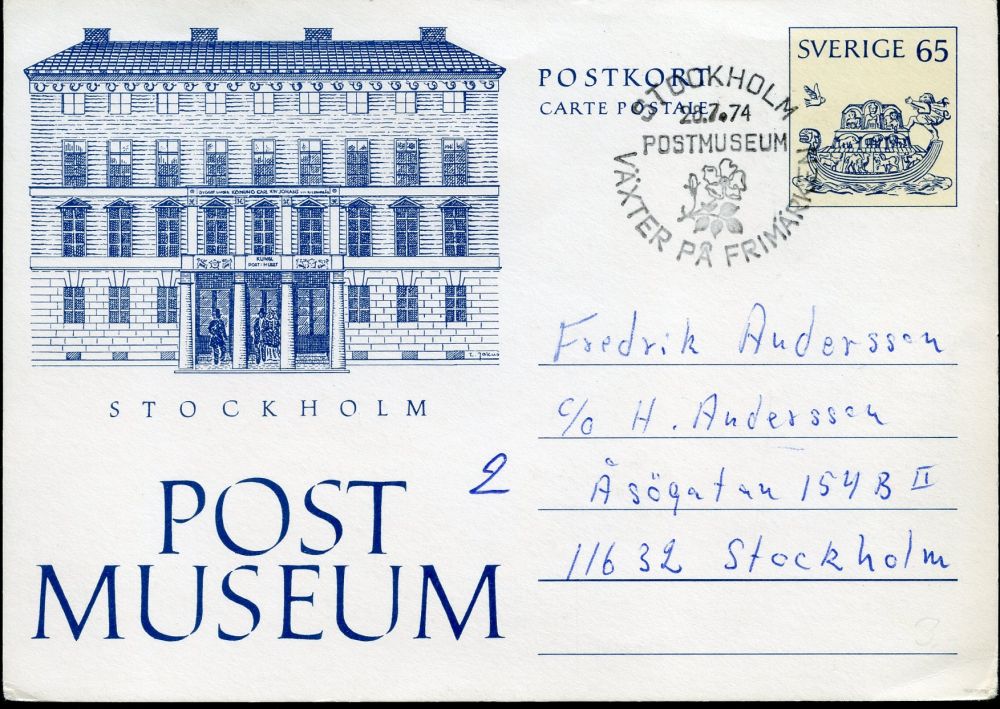 POSTKORT
CARTE POSTALE
SVERIGE 65
STOCKHOLM
28.7.74
POSTMUSEUM
VÄXTER PÅ FRIMÄRKEN
KONUNG CARL XIV JOHANS
KUNGL
POST-HUSET
STOCKHOLM
POST
MUSEUM
2
Fredrik Andersson
c/o H. Andersson
Åsögatan 154 B II
116 32 Stockholm